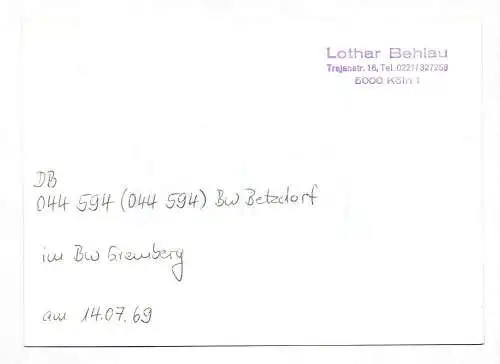 Lothar Behlau
Trajanstr. 16, Tel. 0221/327259
5000 Köln 1
DB
044 594 (044 594) Bw Betzdorf
im Bw Gremberg
am 14.07.69